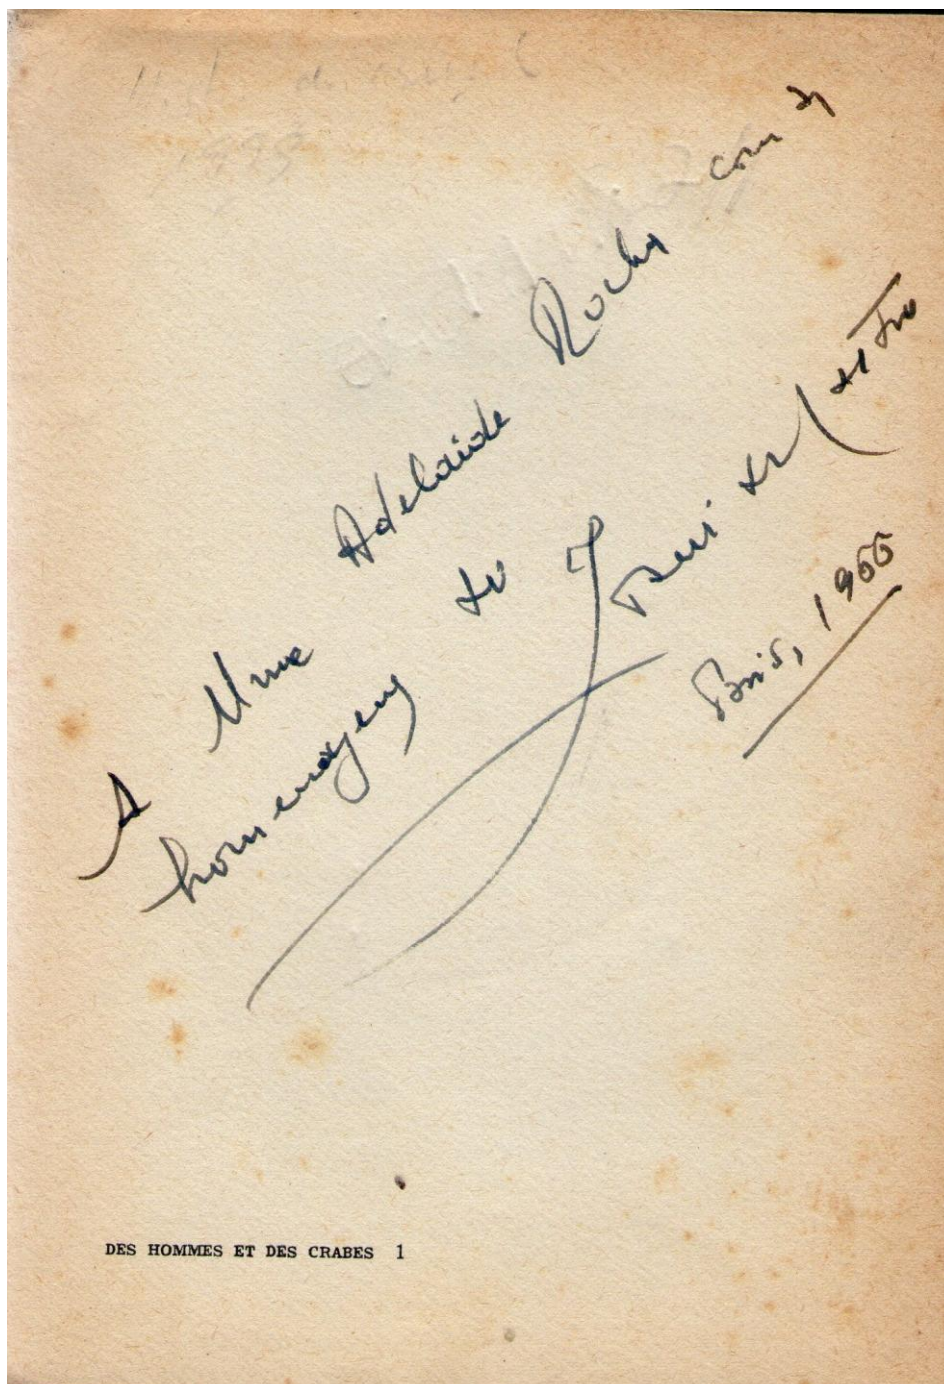 A Mme Adelaide Rocha com as
homenagens do Josué de Castro
Paris, 1966
DES HOMMES ET DES CRABES 1